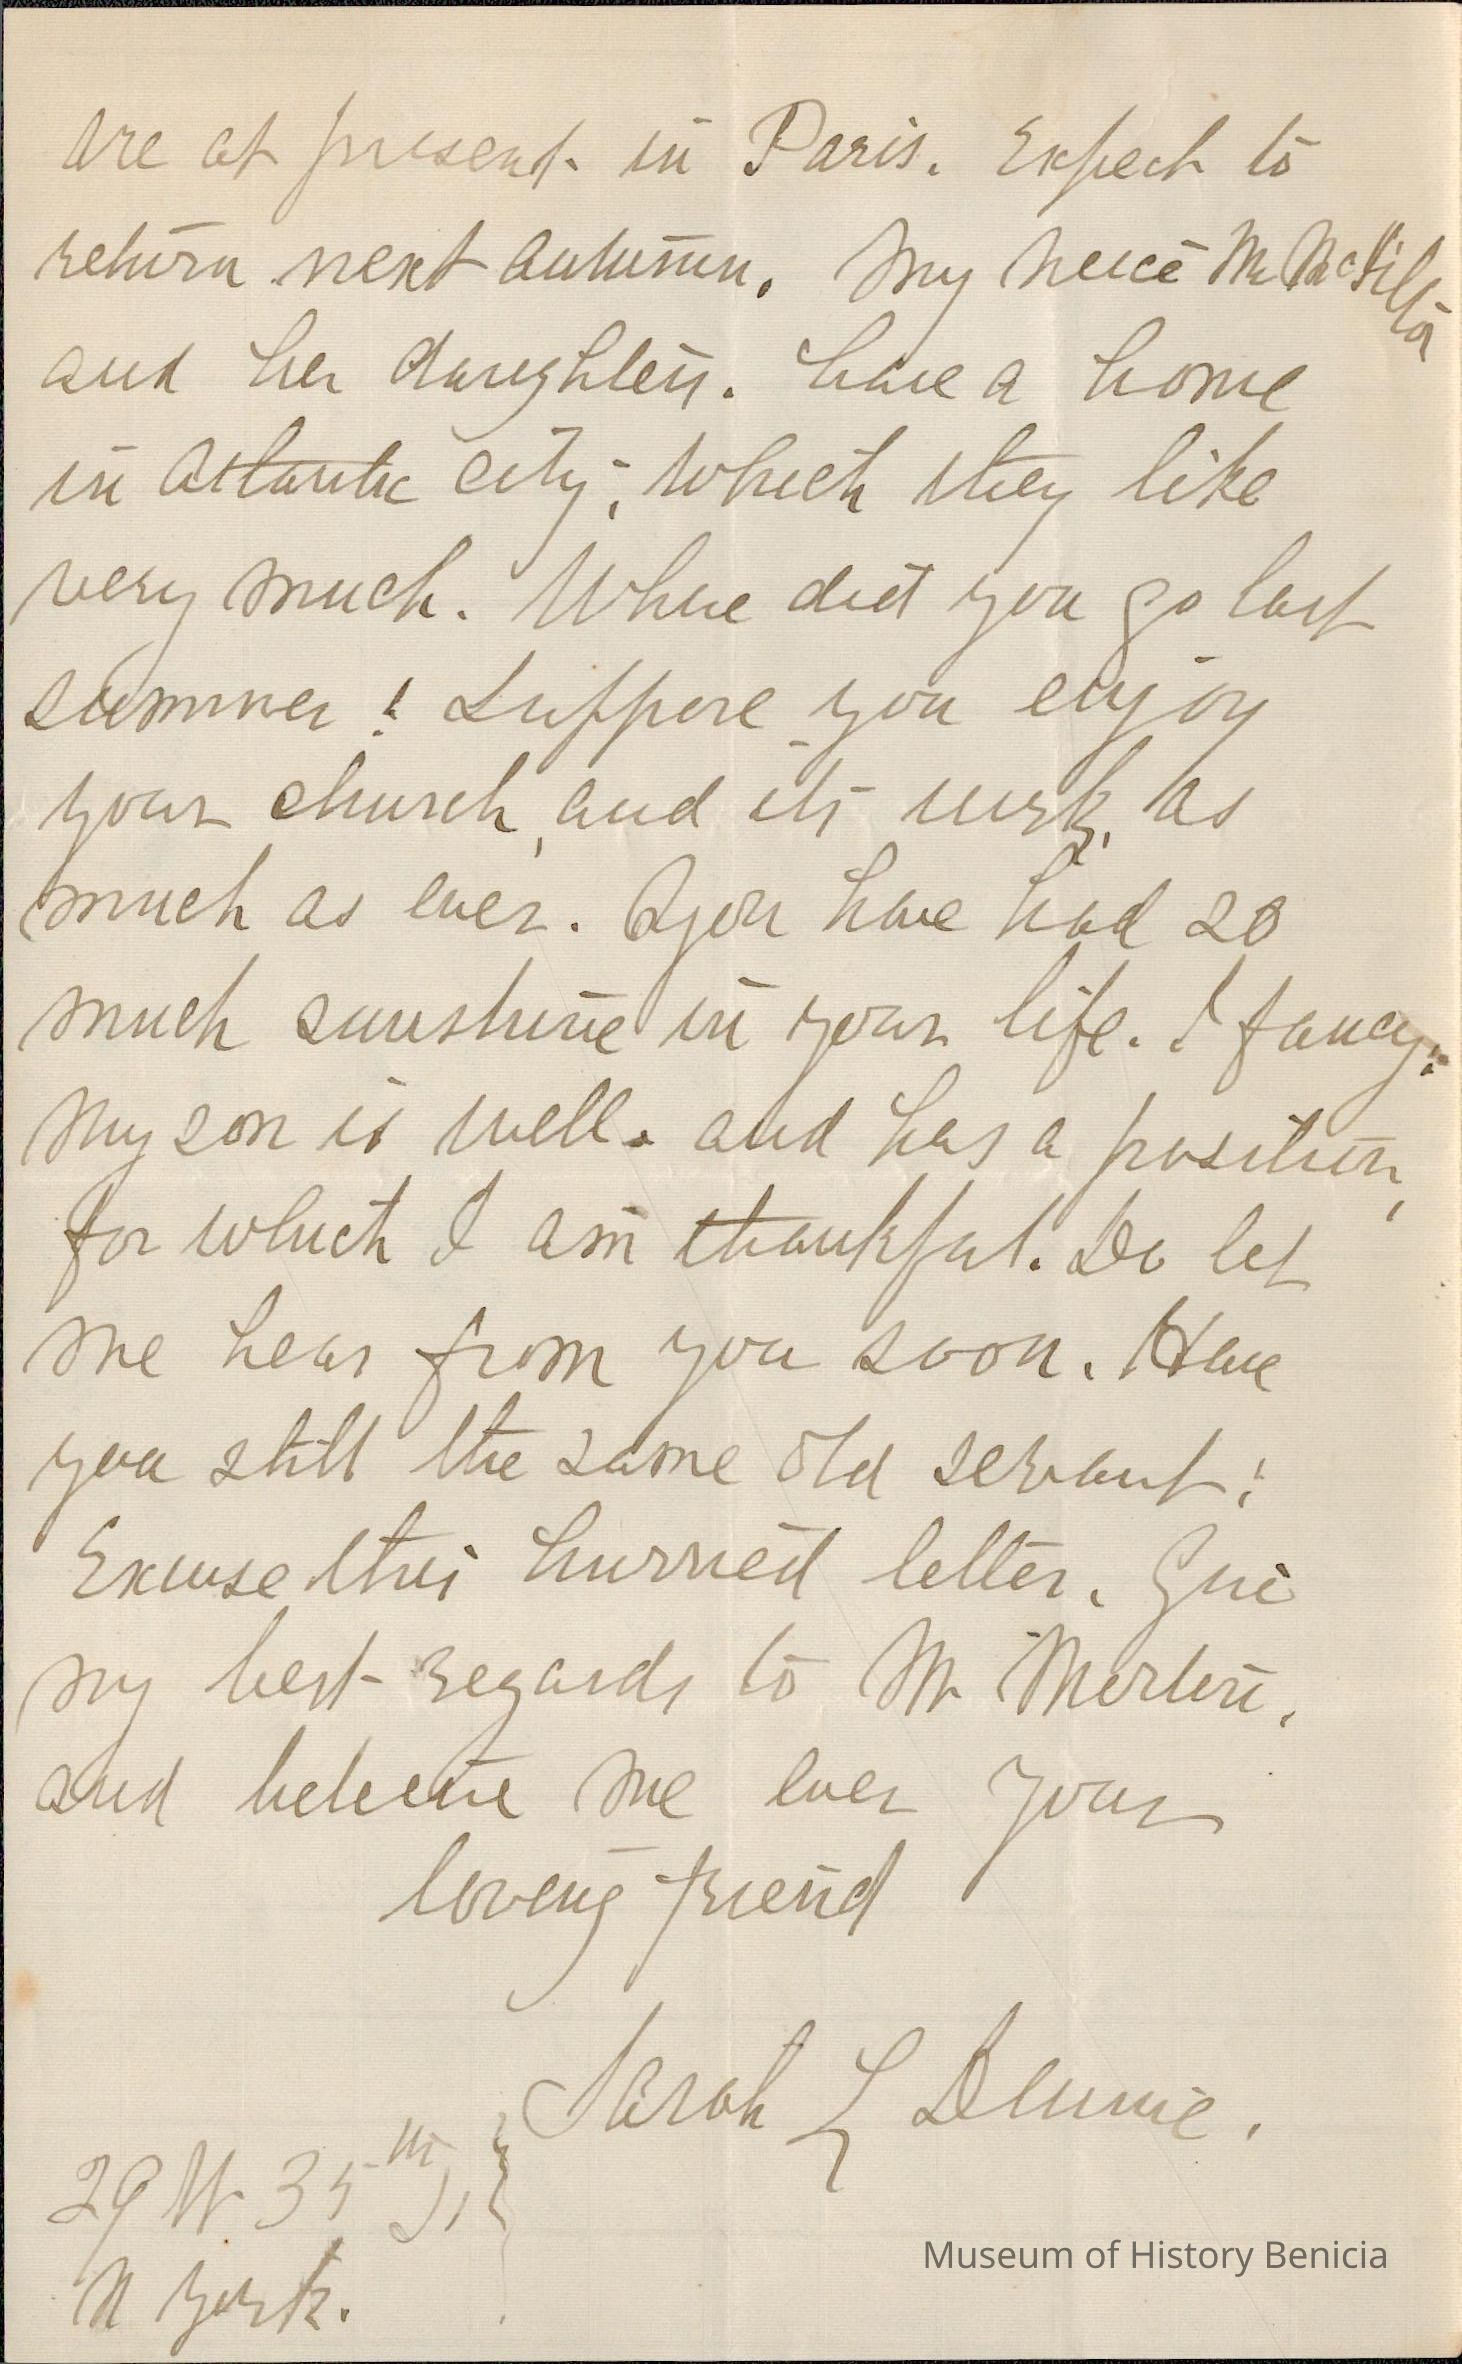 are at present in Paris. Expect to
return next autumn. My neice
and her daughters. have a home
in Atlantic City, which they like
very much. Where did you go last
summer? Suppose you enjoy
your church, and its work, as
much as ever. You have had so
much sunshine in your life. I fancy.
My son is well. and has a position,
for which I am thankful. Do let
me hear from you soon. Have
you still the same old servant?
Excuse this hurried letter. Give
my best regards to Mr
and believe me ever your
loving friend
Sarah L
29 W 35th St,
N York.
Museum of History Benicia